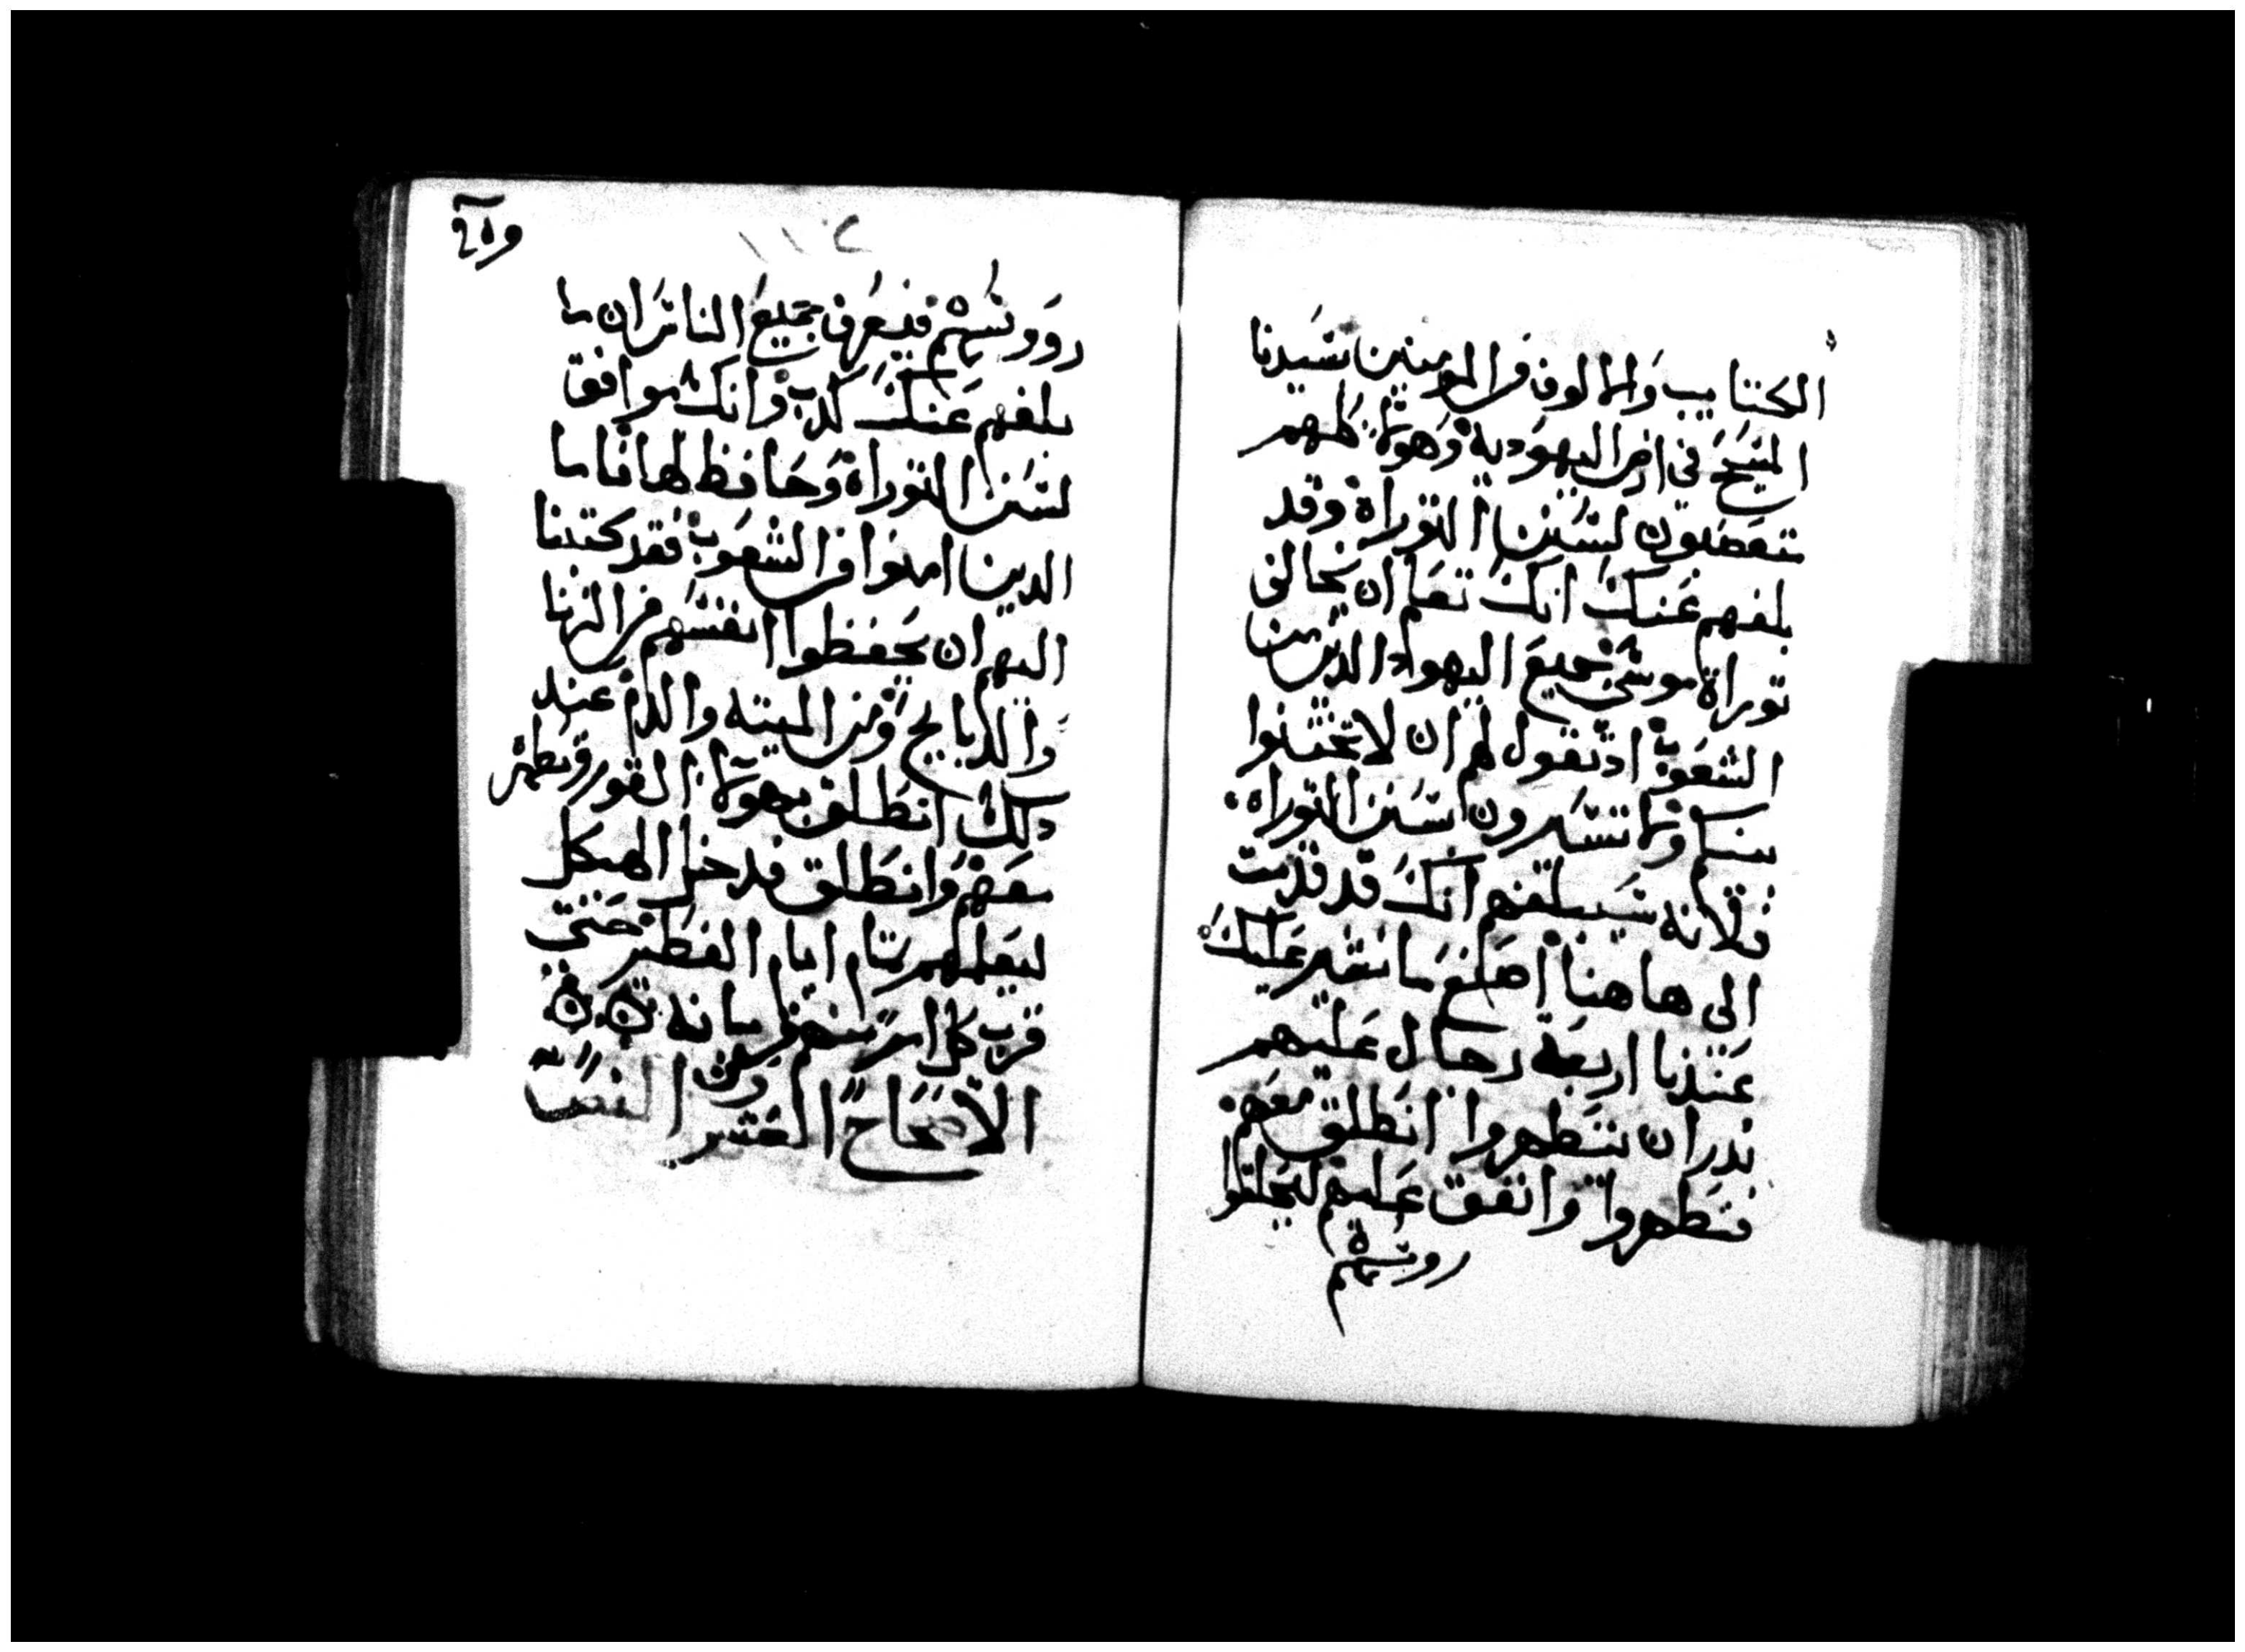 الكتايب والمالوف من المومنين بسيدنا
المسيح في ارض اليهودية وهولا كلهم
متعصبون لسنن التوراة وقد
بلغهم عنك انك تعلم ان يخالف
توراة موسى جميع اليهود الذين من
الشعوب اذ تقول لهم ان لا تختنوا
بنيكم ولا تسيرون بسنن التوراة
فلانه سيبلغهم انك قد قدمت
الى هاهنا اصنع ما نشير عليك
عندنا اربعة رجال عليهم
ندر ان يتطهروا انطلق معهم
فتطهروا وانفق عليهم ليحلقوا
رووسهم
رووسهم فيعرف جميع الناس ان ما
بلغهم عنك كدب وانك موافق
لسنن التوراة وحافظ لها فاما
الدين امنوا من الشعوب فقد كتبنا
اليهم ان يحفظوا انفسهم من الزنا
والدبايح ومن الميته والدم عند
دلك انطلق بهولا القوم وتطهر
معهم وانطلق فدخل الهيكل
ليعلمهم تمام ايام التطهير حتى
قرب كل امر منهم قربانه
الاصحاح العشرون